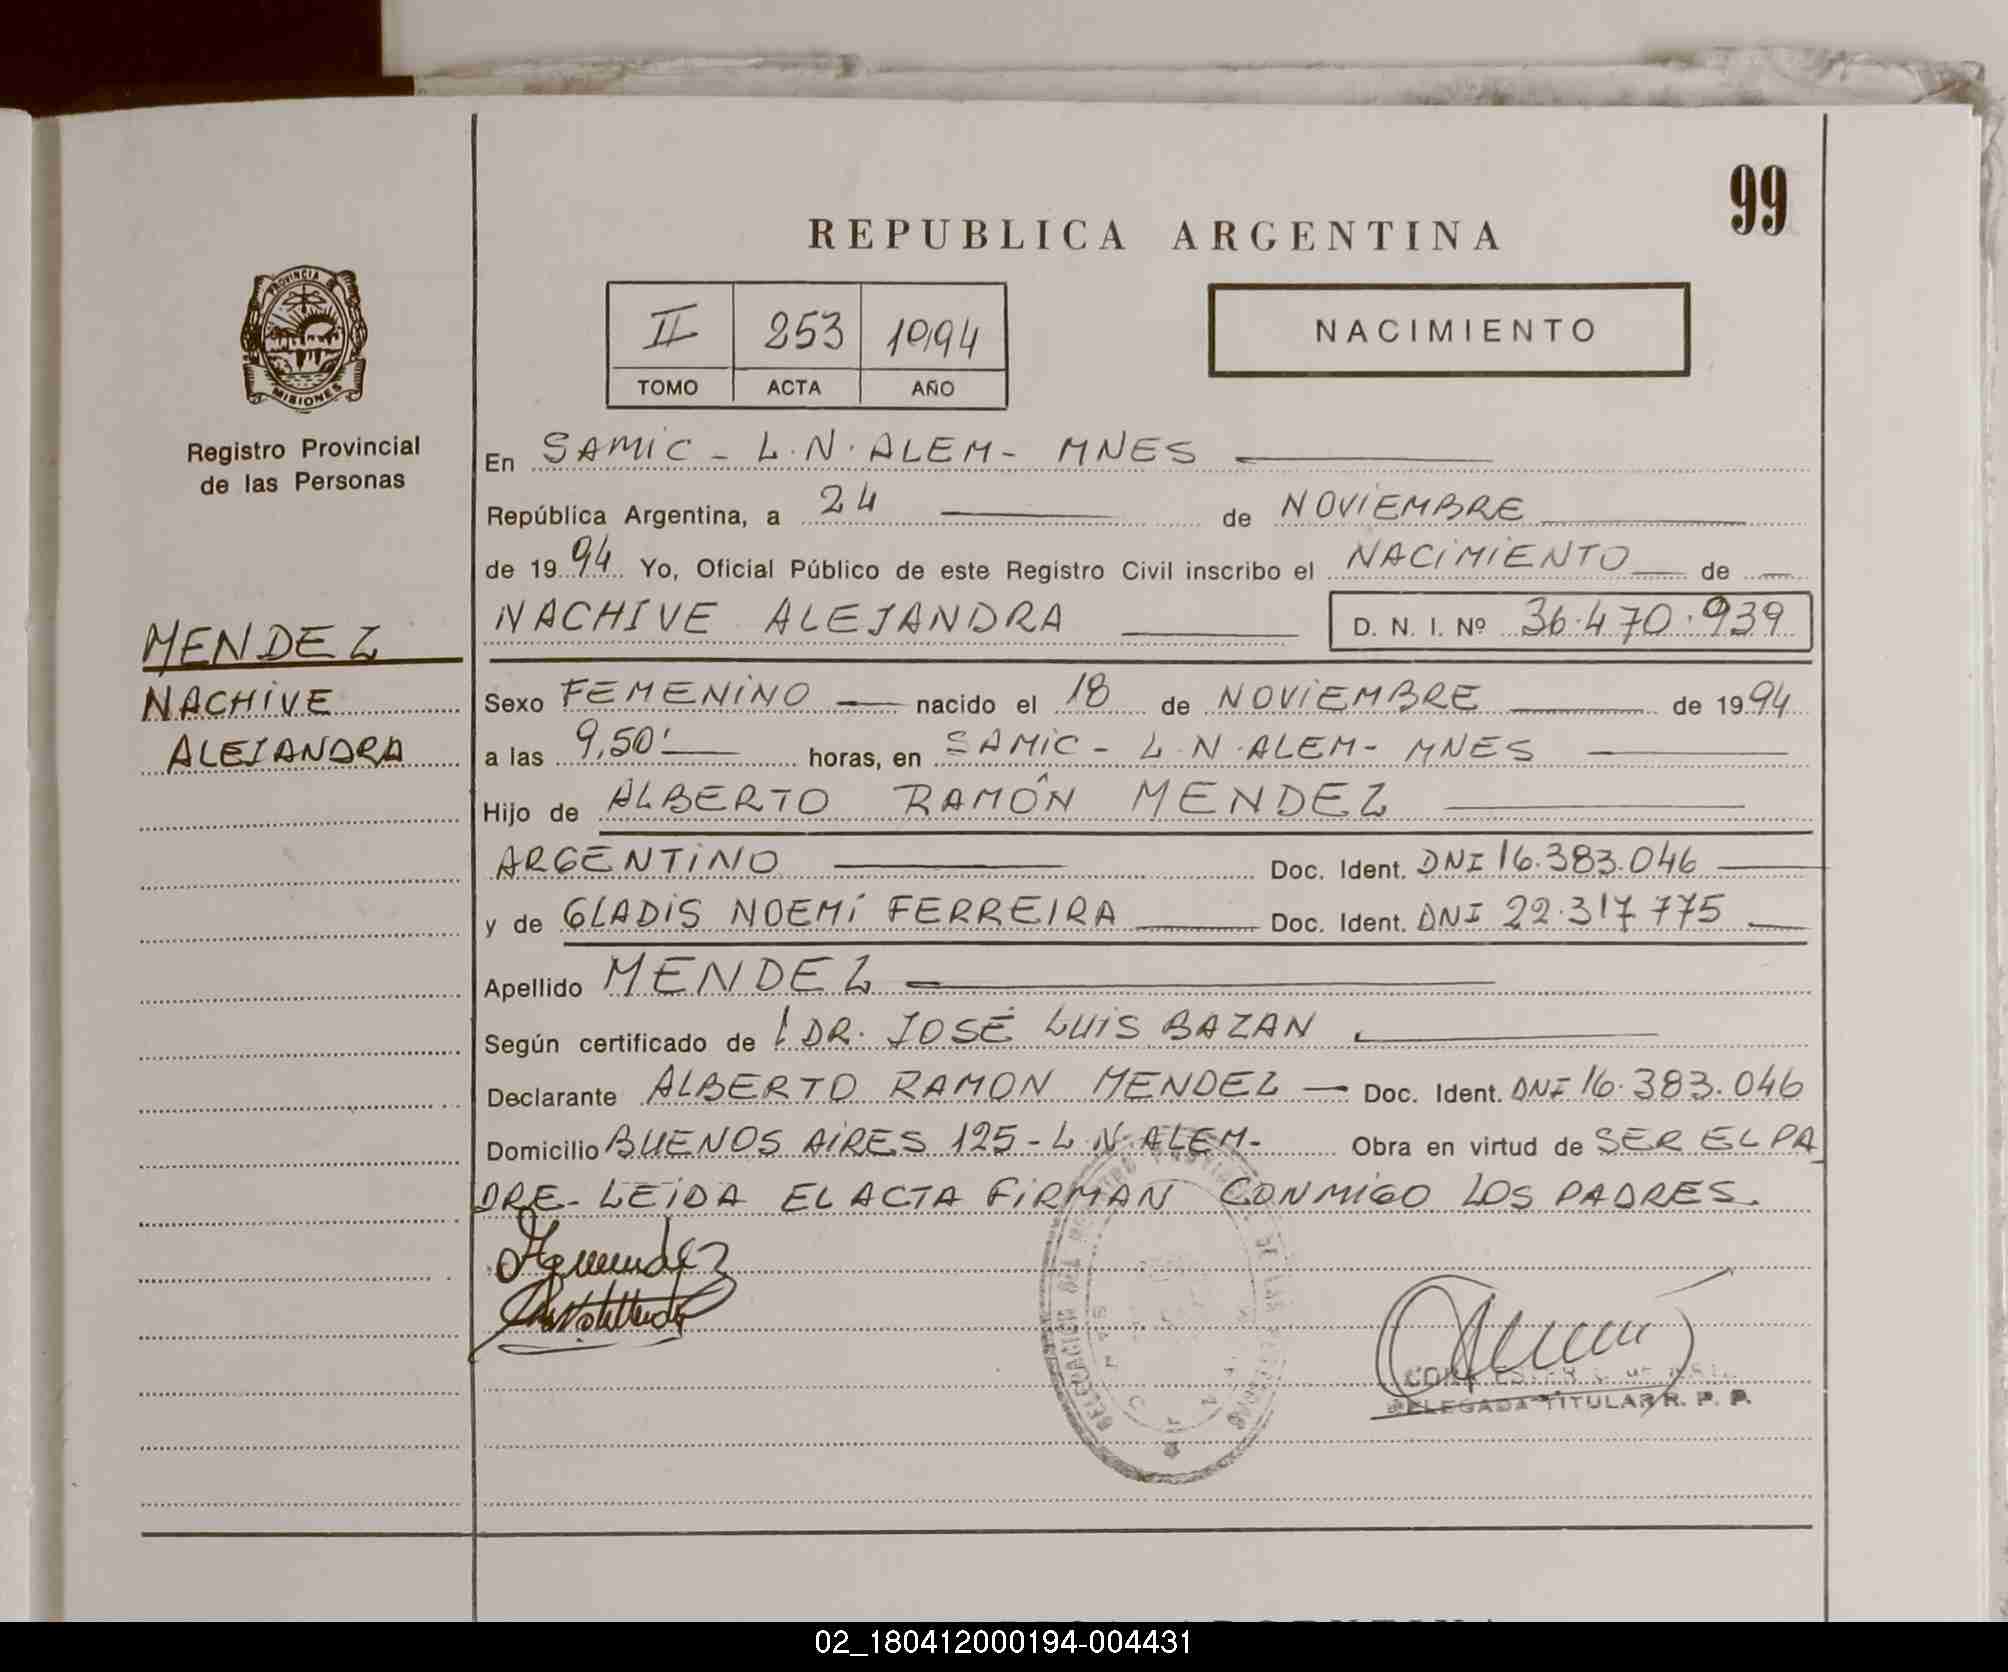 99
REPUBLICA ARGENTINA
PROVINCIA DE
MISIONES
Registro Provincial
de las Personas
MENDEZ
NACHIVE
ALEJANDRA
II 253 1994
TOMO ACTA AÑO
NACIMIENTO
En SAMIC - L.N. ALEM - MNES
República Argentina, a 24 de NOVIEMBRE
de 1994 Yo, Oficial Público de este Registro Civil inscribo el NACIMIENTO de
NACHIVE ALEJANDRA D. N. I. Nº 36.470.939
Sexo FEMENINO nacido el 18 de NOVIEMBRE de 1994
a las 9,50' horas, en SAMIC - L.N. ALEM - MNES
Hijo de ALBERTO RAMÓN MENDEZ
ARGENTINO Doc. Ident. DNI 16.383.046
y de GLADIS NOEMÍ FERREIRA Doc. Ident. DNI 22.317.775
Apellido MENDEZ
Según certificado de DR. JOSÉ LUIS BAZAN
Declarante ALBERTO RAMON MENDEZ Doc. Ident. DNI 16.383.046
Domicilio BUENOS AIRES 125 - L.N. ALEM - Obra en virtud de SER EL PA
DRE - LEIDA EL ACTA FIRMAN CONMIGO LOS PADRES.
DELEGADA TITULAR R. P. P.
02_180412000194-004431